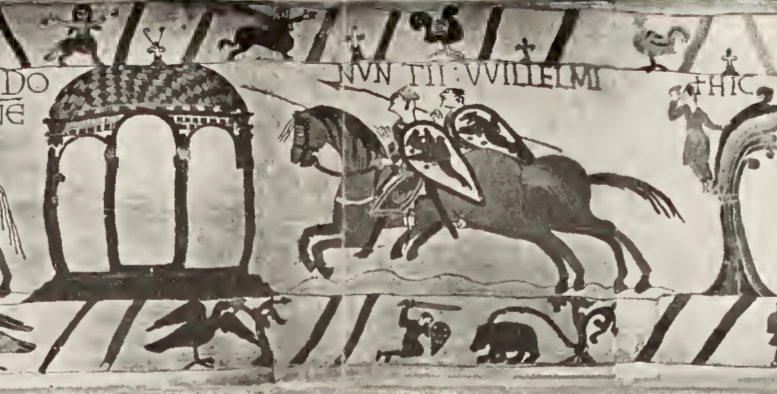 DO
NE
NVN TII : VVILLELMI
+HIC